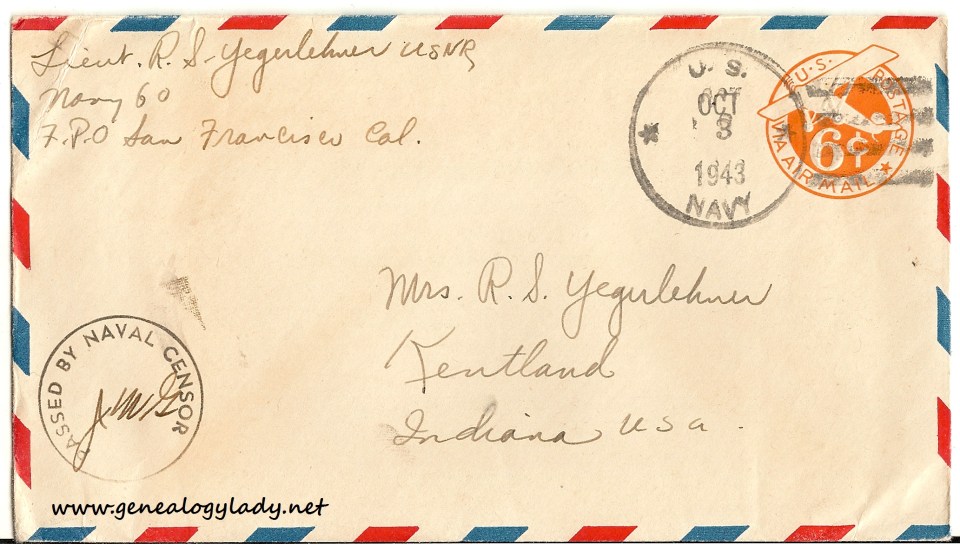 Lieut. R. S. Yegerlehner USNR
Navy 60
F.P.O San Francisco Cal.
U. S.
OCT
3
1943
NAVY
U.S. POSTAGE
6¢
VIA AIR MAIL
Mrs. R. S. Yegerlehner
Kentland
Indiana USA.
PASSED BY NAVAL CENSOR
JMG
www.genealogylady.net